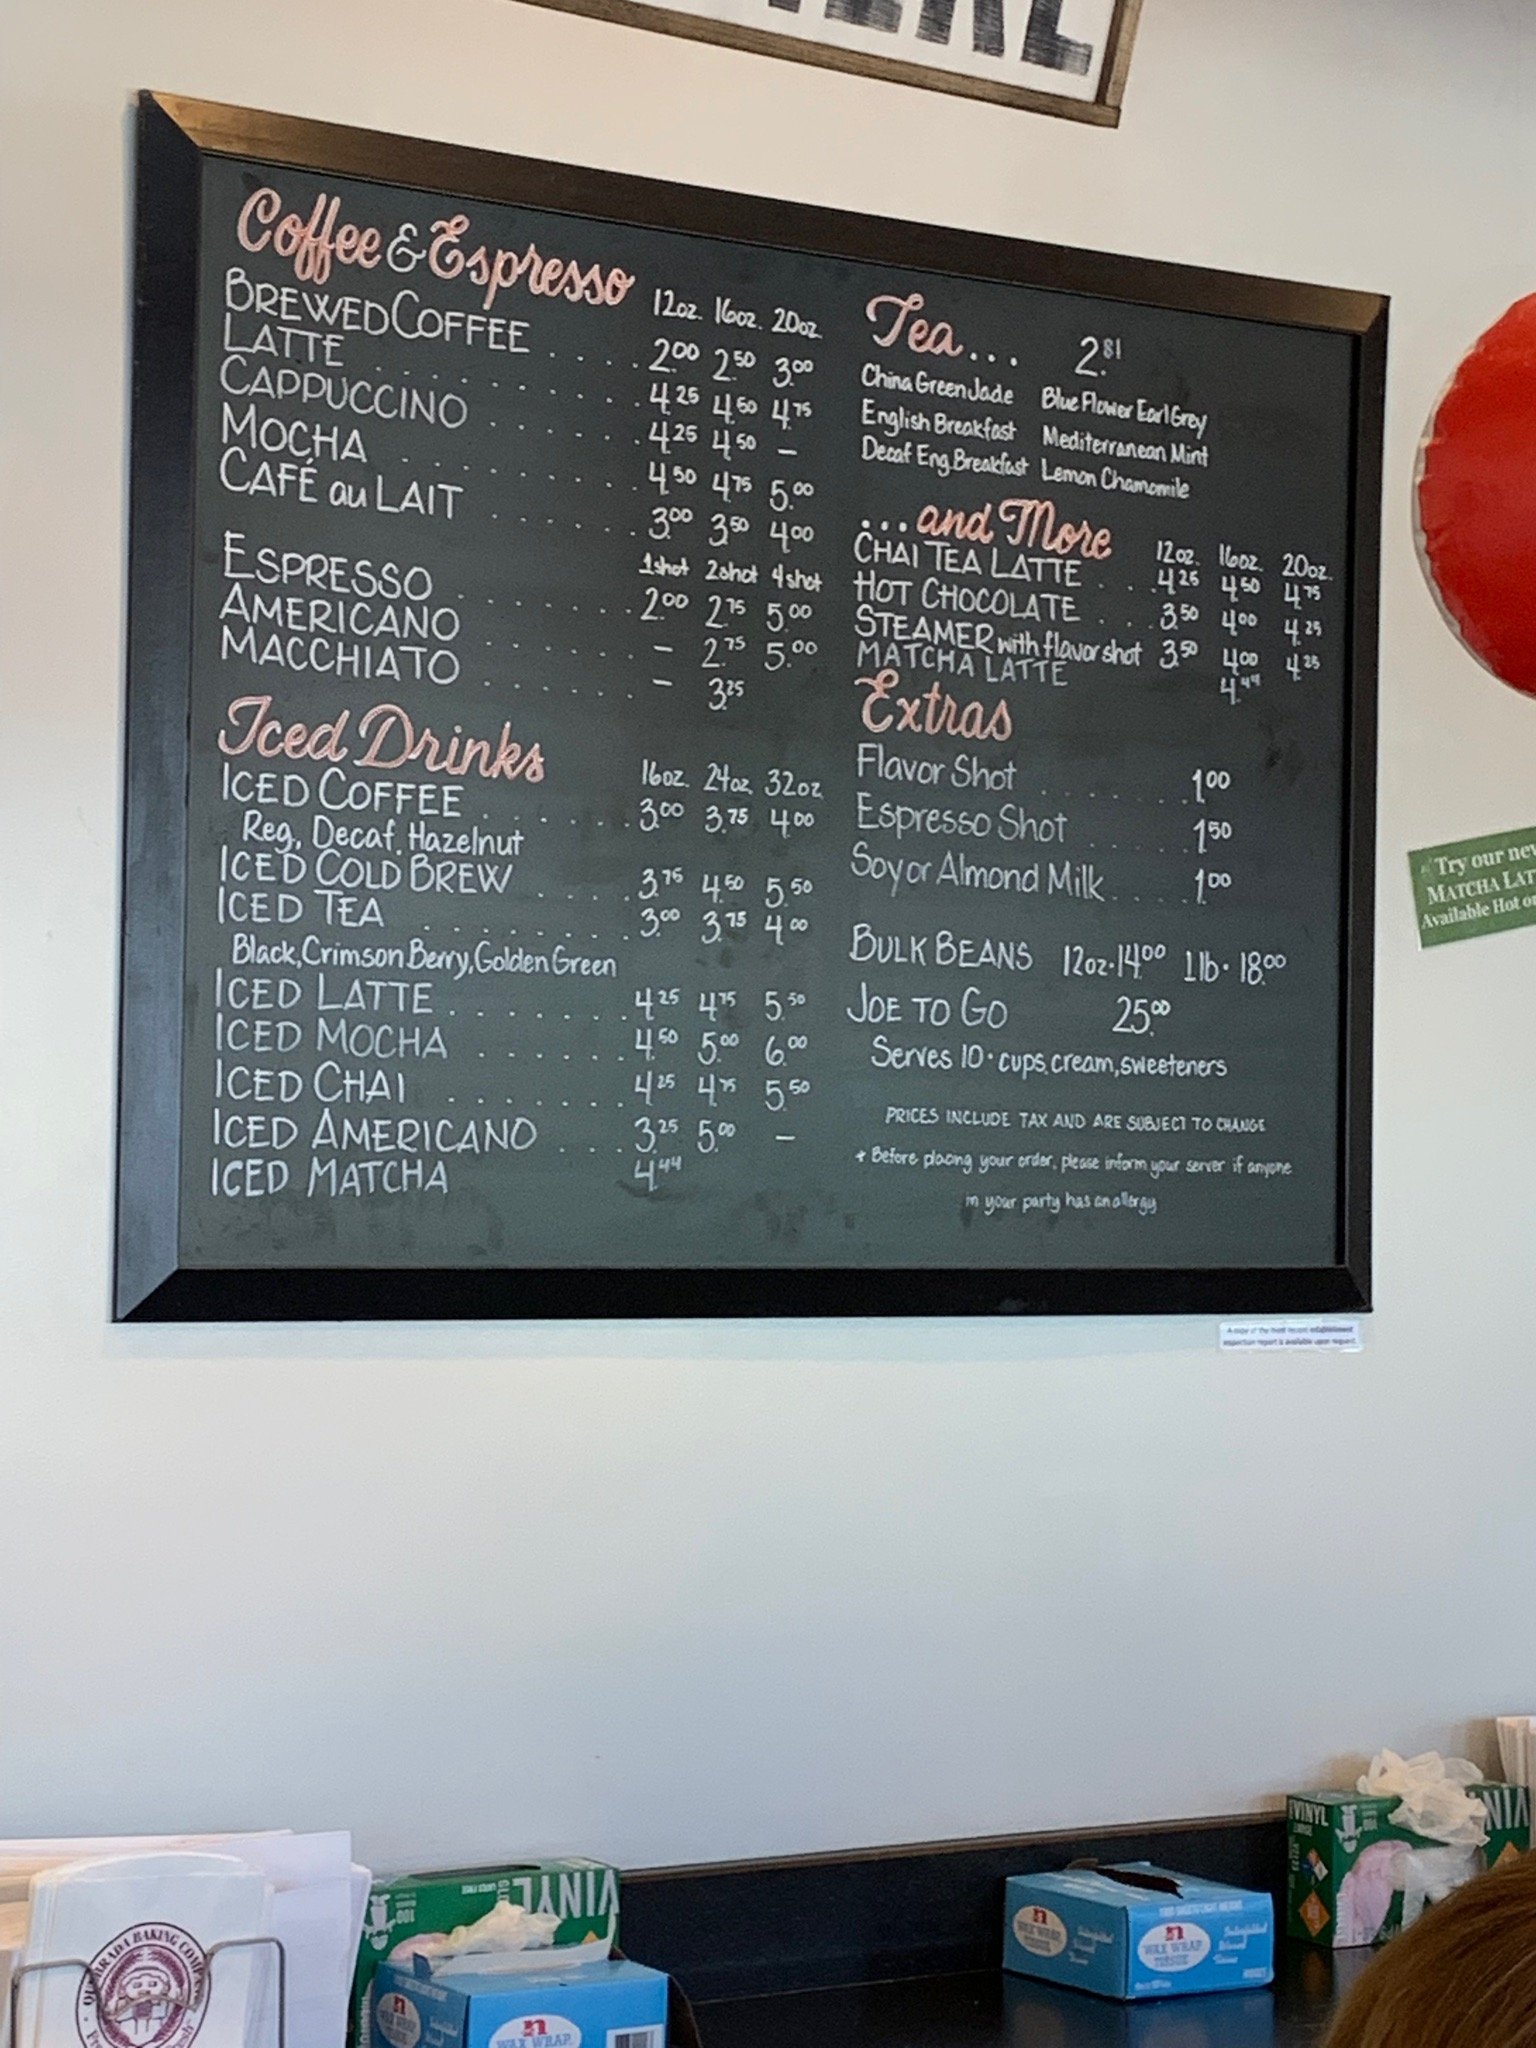 Coffee & Espresso 12oz. 16oz. 20oz.
BREWED COFFEE . . . . . 2.00 2.50 3.00
LATTE . . . . . . . . . . 4.25 4.50 4.75
CAPPUCCINO . . . . . . 4.25 4.50 –
MOCHA . . . . . . . . . 4.50 4.75 5.00
CAFÉ au LAIT . . . . . . 3.00 3.50 4.00
1shot 2shot 4shot
ESPRESSO . . . . . . . . 2.00 2.75 5.00
AMERICANO . . . . . . – 2.75 5.00
MACCHIATO . . . . . . – 3.25
Iced Drinks 16oz. 24oz. 32oz
ICED COFFEE . . . . . . 3.00 3.75 4.00
Reg, Decaf, Hazelnut
ICED COLD BREW . . . . 3.75 4.50 5.50
ICED TEA . . . . . . . . 3.00 3.75 4.00
Black, Crimson Berry, Golden Green
ICED LATTE . . . . . . . 4.25 4.75 5.50
ICED MOCHA . . . . . . 4.50 5.00 6.00
ICED CHAI . . . . . . . 4.25 4.75 5.50
ICED AMERICANO . . . 3.25 5.00 –
ICED MATCHA 4.44
Tea... 2.81
China Green Jade Blue Flower Earl Grey
English Breakfast Mediterranean Mint
Decaf Eng. Breakfast Lemon Chamomile
...and More 12oz. 16oz. 20oz.
CHAI TEA LATTE . . . 4.25 4.50 4.75
HOT CHOCOLATE . . . 3.50 4.00 4.25
STEAMER with flavor shot 3.50 4.00 4.25
MATCHA LATTE 4.44
Extras
Flavor Shot . . . . . . . . 1.00
Espresso Shot . . . . . . 1.50
Soy or Almond Milk . . . . . 1.00
BULK BEANS 12oz · 14.00 1 lb · 18.00
JOE TO GO 25.00
Serves 10 · cups, cream, sweeteners
PRICES INCLUDE TAX AND ARE SUBJECT TO CHANGE
* Before placing your order, please inform your server if anyone
in your party has an allergy
Try our new
MATCHA LAT
Available Hot or
A copy of the most recent establishment
inspection report is available upon request.
VINYL
100
VINYL
100
VINYL
n
WAX WRAP
n
WAX WRAP
TISSUE
n
WAX WRAP
TISSUE
Interfolded
Waxed
Tissue
BAKING COMP